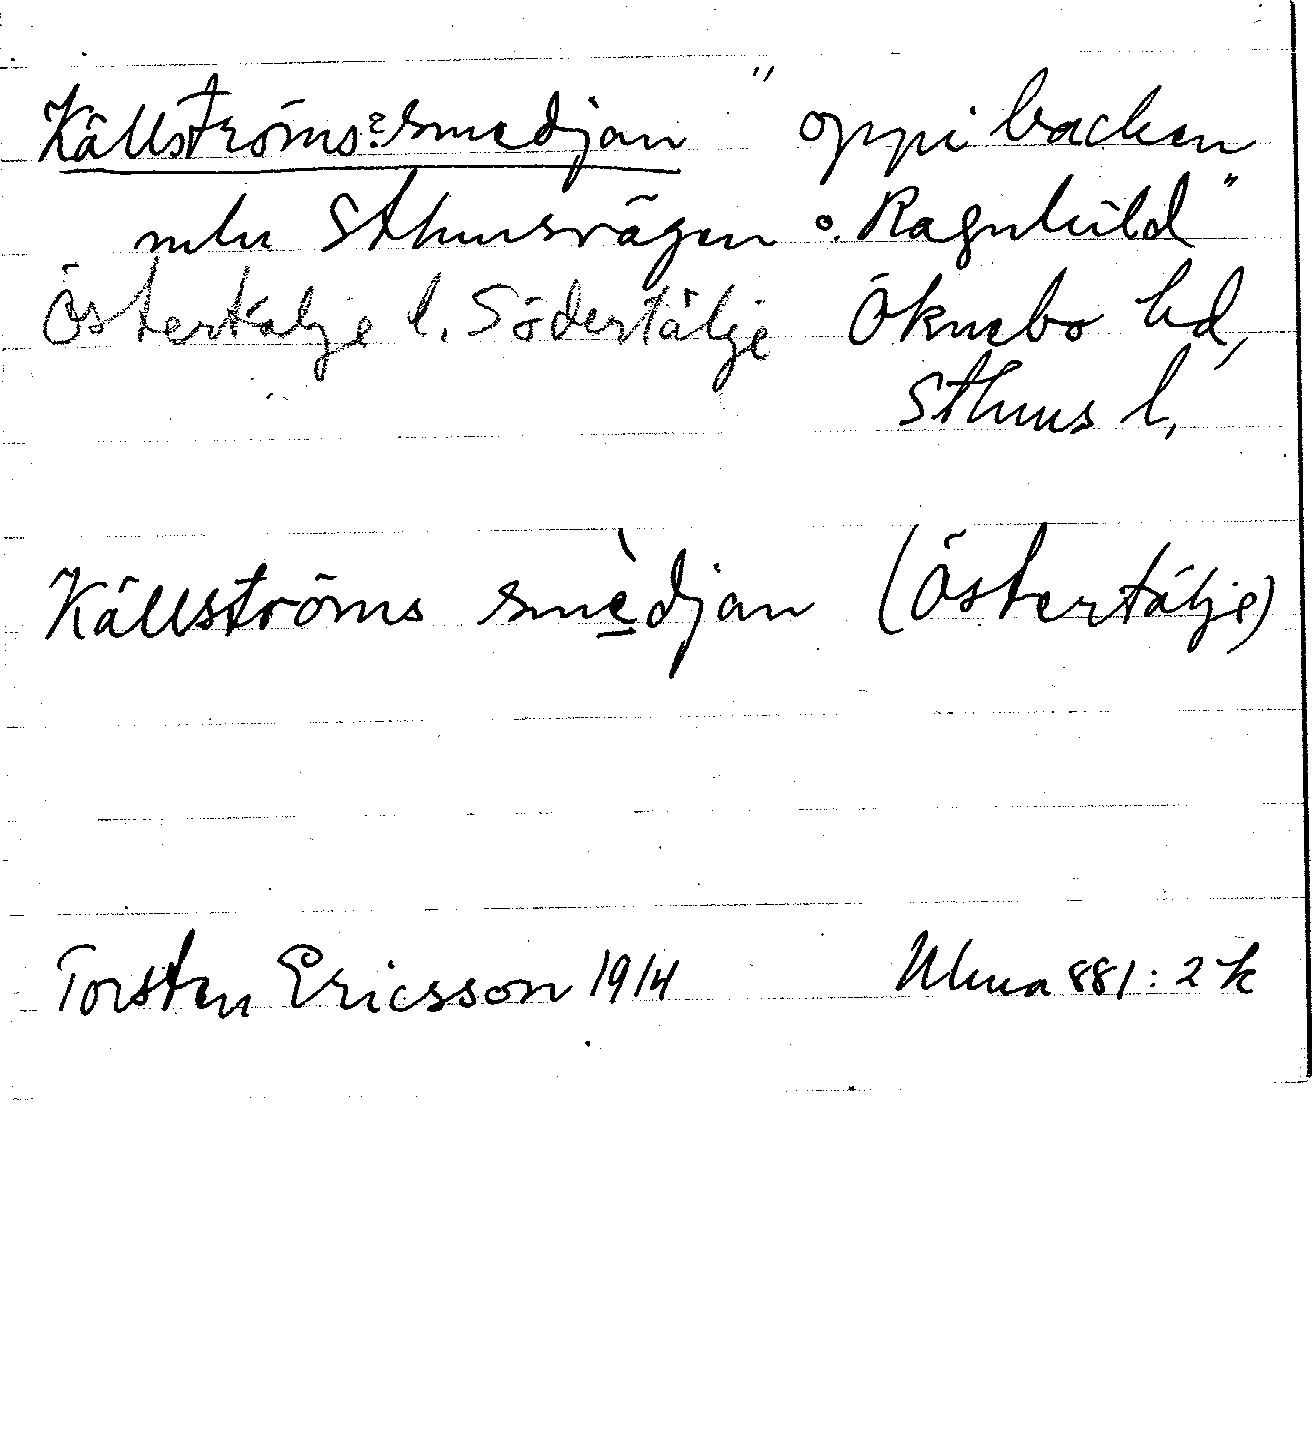 Källströms?smedjan " oppi backen
mln Sthmsvägen o. Ragnhild"
Östertälje l. Södertälje Öknebo hd,
Sthms l,
Källströms smèdjan (Östertälje)
Torsten Ericsson 1914 Ulma 881:2 k